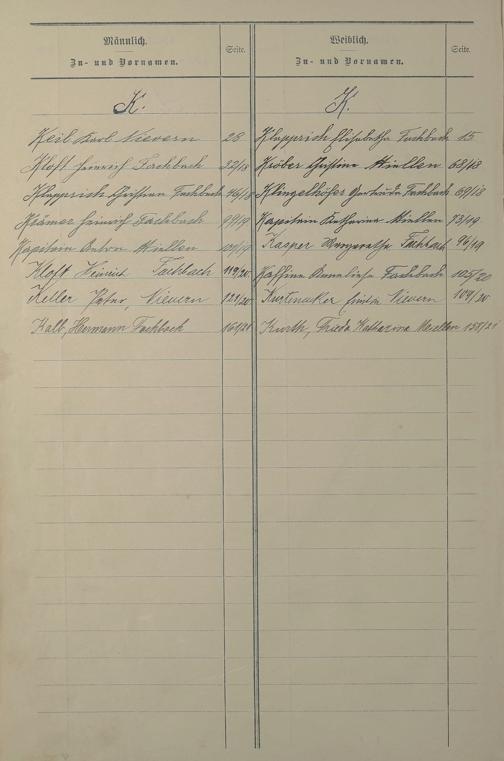 Männlich.
Zu- und Vornamen.
Seite.
K.
Keil Karl Nievern 28
Kloft Heinrich Fachbach 22/18
Klepprich Christian Fachbach 46/18
Krämer Heinrich Fachbach 99/19
Kapitein Anton Miellen 109/19
Kloft Heinrich Fachbach 119/20
Keller Peter, Nievern 122/20
Kalb, Hermann Fachbach 169/21
Weiblich.
Zu- und Vornamen.
Seite.
K
Klepprich Elisabetha Fachbach 15
Kröber Christina Miellen 68/18
Klingelhöfer Gertrude Fachbach 69/18
Kapitein Katharina Miellen 73/19
Kasper Margaretha Fachbach 96/19
Kaffine Anneliese Fachbach 105/20
Kurtenacker Nievern 109/20
Kurth, Frieda Katharina Miellen 158/21